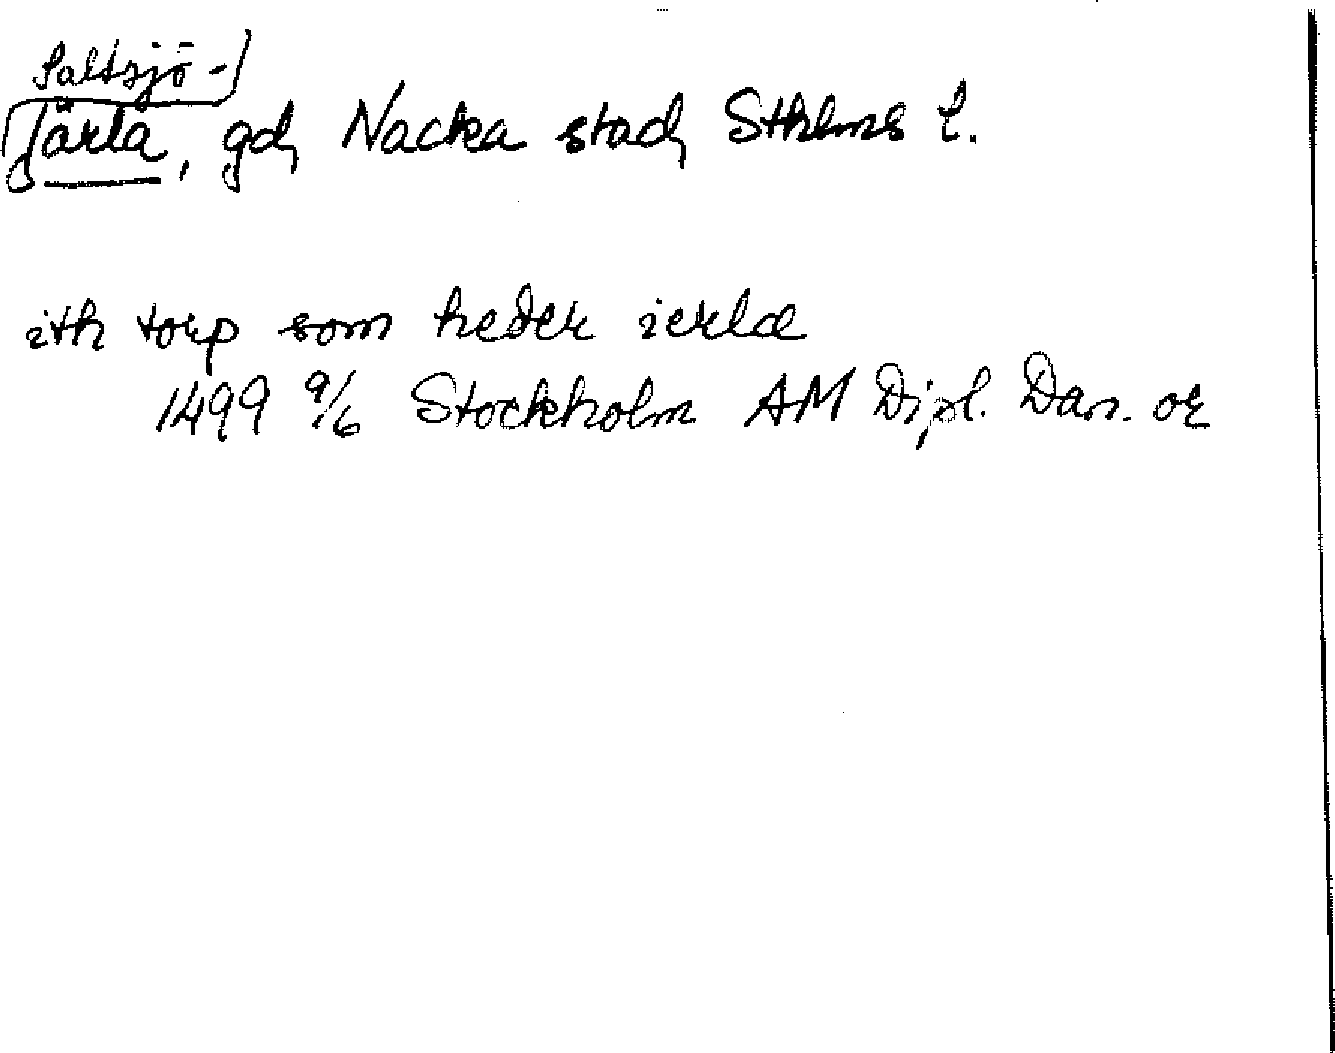 Saltsjö-
Järla, gd, Nacka stad, Sthlms l.
ith torp som heder ierlæ
1499 9/6 Stockholm AM Dipl. Dan. or